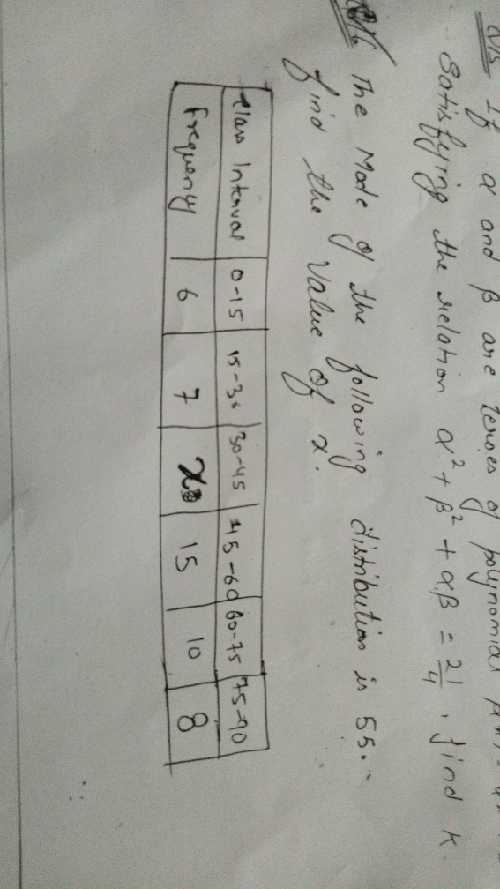 If α and β are zeroes of polynomial
Satisfying the relation α² + β² + αβ = 21/4 . find K.
The Mode of the following distribution is 55.
find the value of x.
Class Interval 0-15 15-30 30-45 45-60 60-75 75-90
Frequency 6 7 x 15 10 8